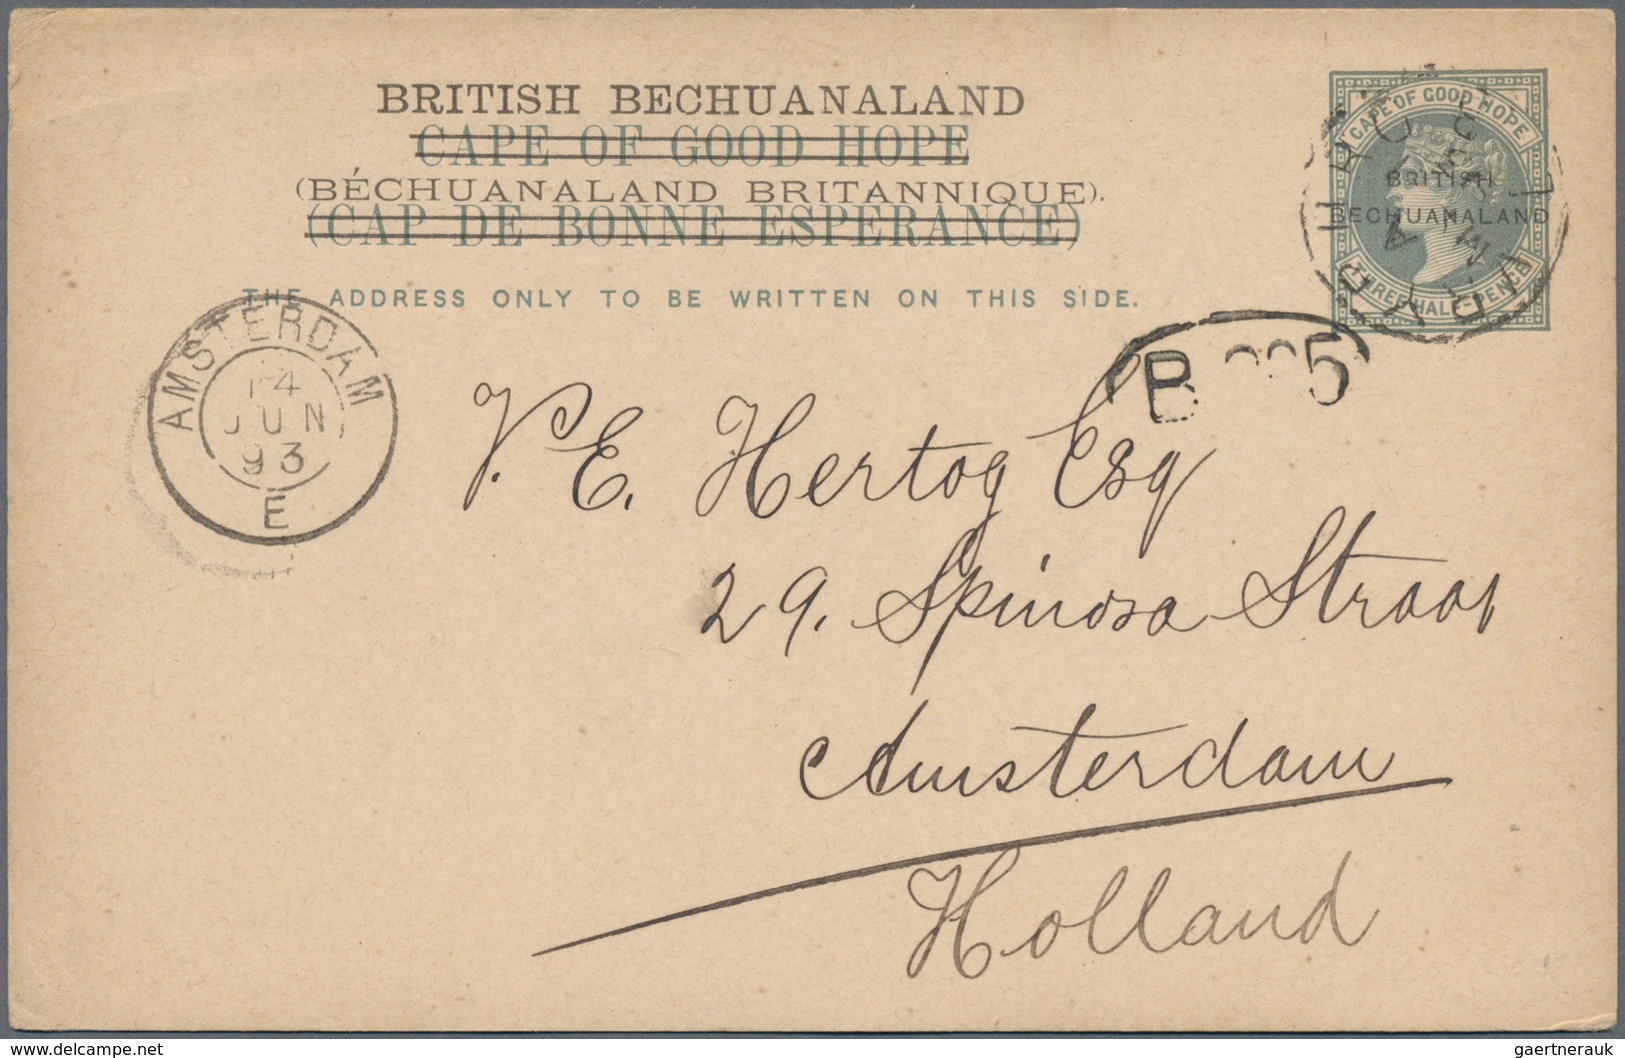 BRITISH BECHUANALAND
CAPE OF GOOD HOPE
(BÉCHUANALAND BRITANNIQUE).
(CAP DE BONNE ESPERANCE)
THE ADDRESS ONLY TO BE WRITTEN ON THIS SIDE.
CAPE OF GOOD HOPE
BRITISH
BECHUANALAND
THREE HALF PENCE
AMSTERDAM
14
JUN
93
E
B 5
V. E. Hertog Esq
29. Spinosa Straat
Amsterdam
Holland
www.delcampe.net
gaertnerauk